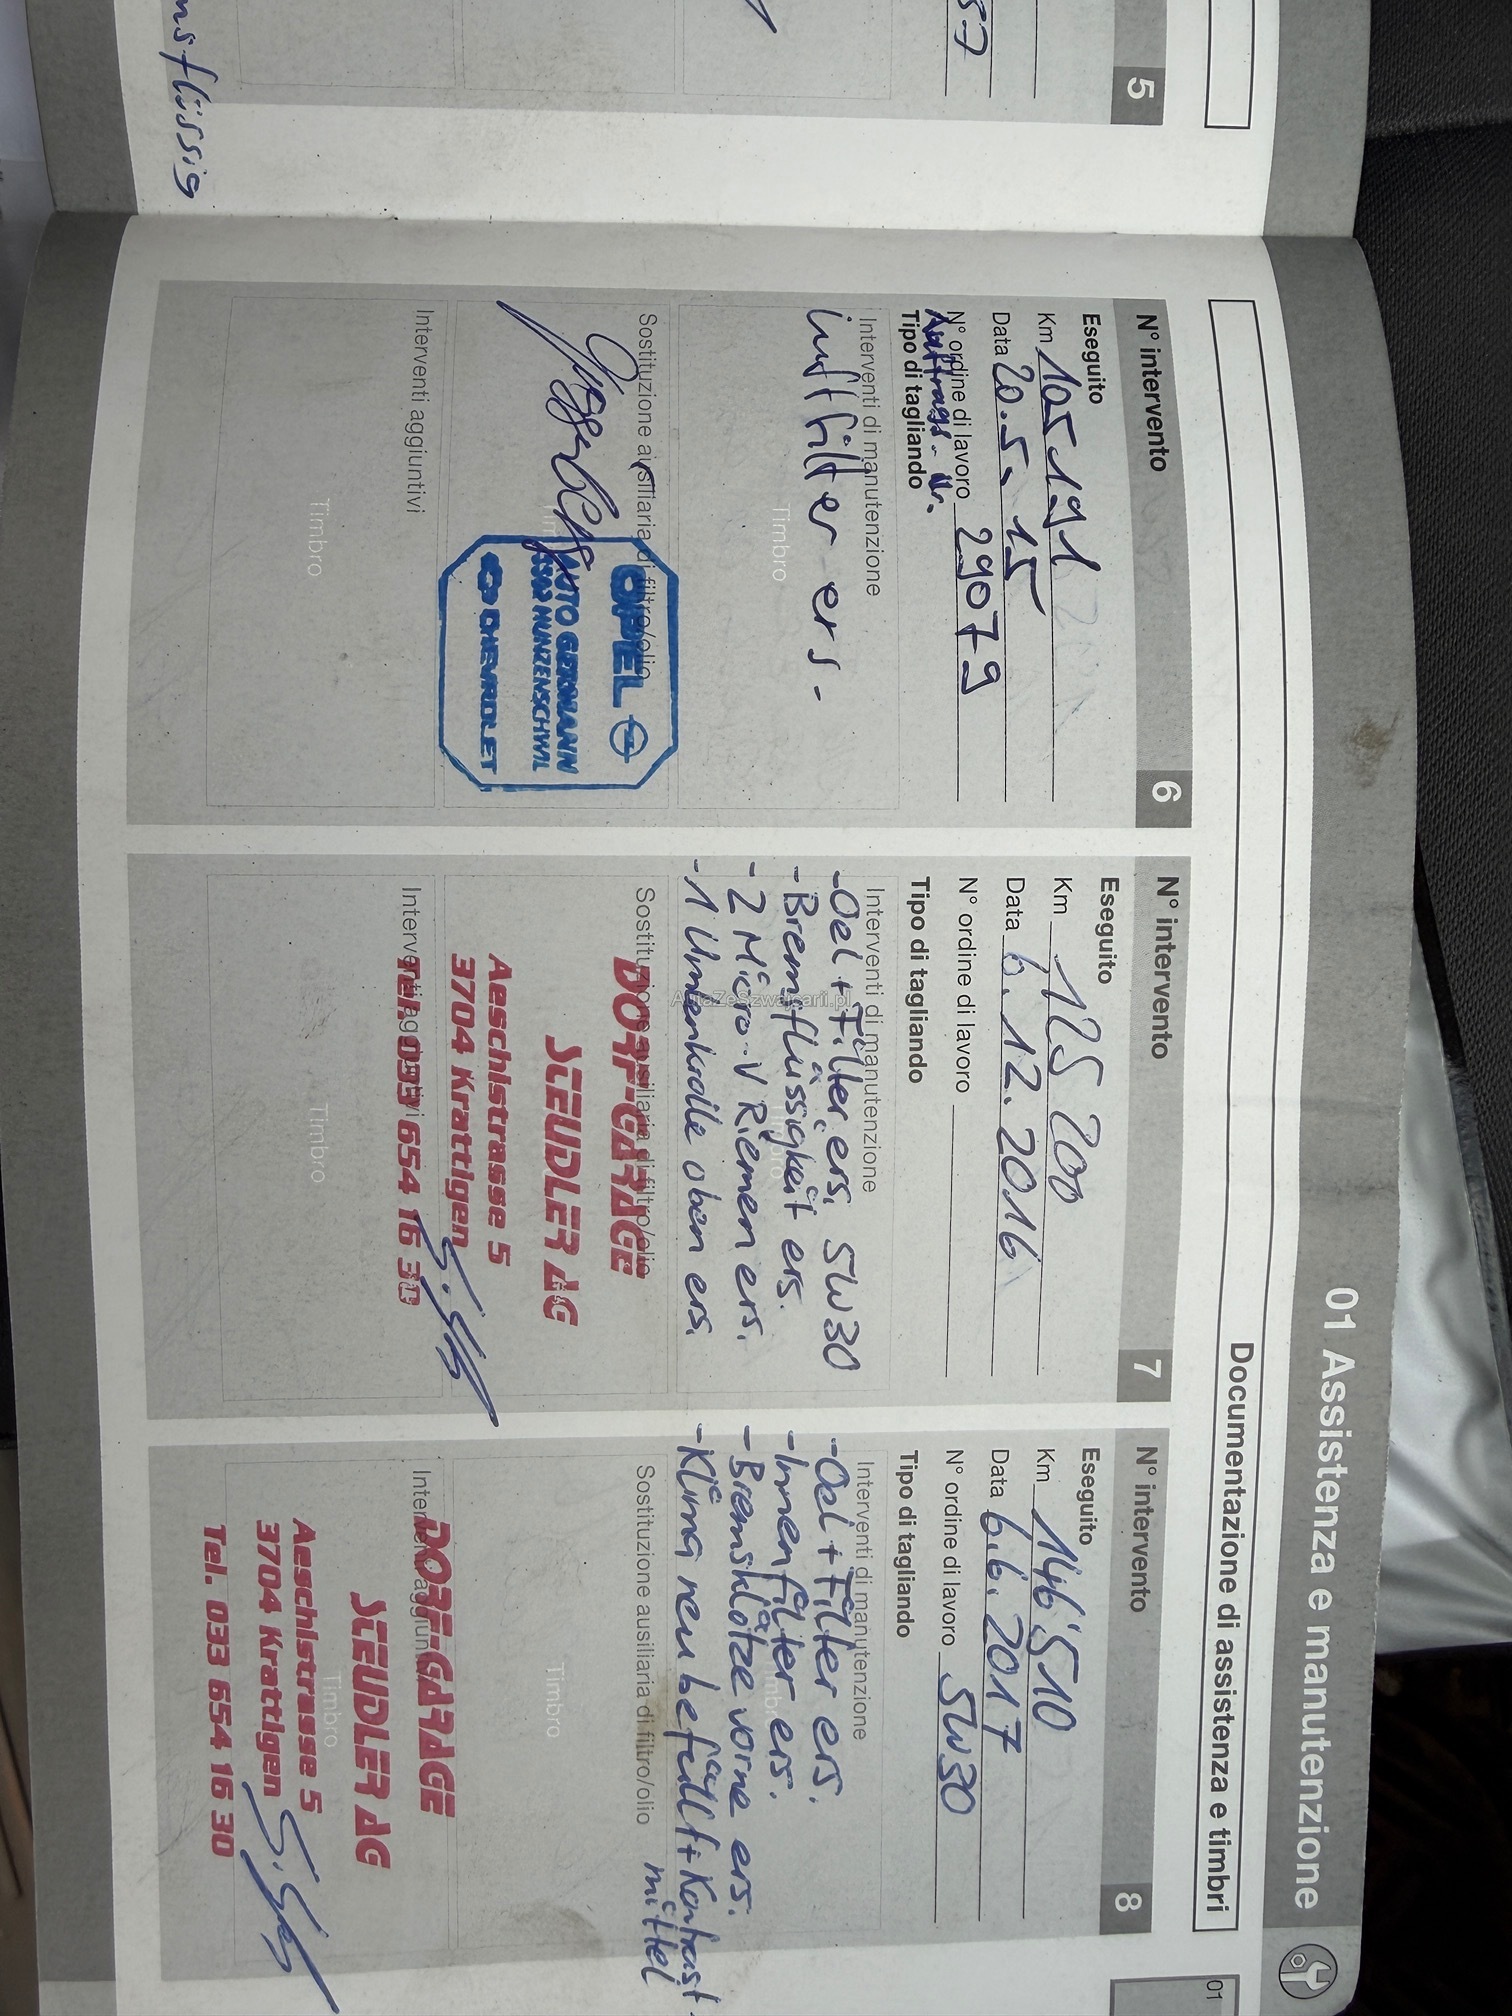 01 Assistenza e manutenzione
Documentazione di assistenza e timbri
01
5
57
nsflüssig
N° intervento 6
Eseguito
Km 105191
Data 20.5.15
N° ordine di lavoro 29079
Auftrags-Nr.
Tipo di tagliando
Interventi di manutenzione
Luftfilter ers.
Timbro
Sostituzione ausiliaria di filtro/olio
OPEL
AUTO GERMANN
5502 HUNZENSCHWIL
CHEVROLET
Interventi aggiuntivi
Timbro
N° intervento 7
Eseguito
Km 125 200
Data 6.12.2016
N° ordine di lavoro
Tipo di tagliando
Interventi di manutenzione
-Oel + Filter ers. 5W30
-Bremsflüssigkeit ers.
Timbro
-2 Micro-V Riemen ers.
-1 Umlenkrolle oben ers.
Sostituzione ausiliaria di filtro/olio
DORF-GARAGE
STEUDLER AG
Aeschistrasse 5
3704 Krattigen
Interventi aggiuntivi
Tel. 033 654 16 30
Timbro
N° intervento 8
Eseguito
Km 146'510
Data 6.6.2017
N° ordine di lavoro 5W30
Tipo di tagliando
Interventi di manutenzione
-Oel + Filter ers.
-Innenfilter ers.
Timbro
-Bremsklötze vorne ers.
-Klima neu befüllt + Kontrast-
mittel
Sostituzione ausiliaria di filtro/olio
Timbro
Interventi aggiuntivi
DORF-GARAGE
STEUDLER AG
Timbro
Aeschistrasse 5
3704 Krattigen
Tel. 033 654 16 30
AutaZeSzwajcarii.pl